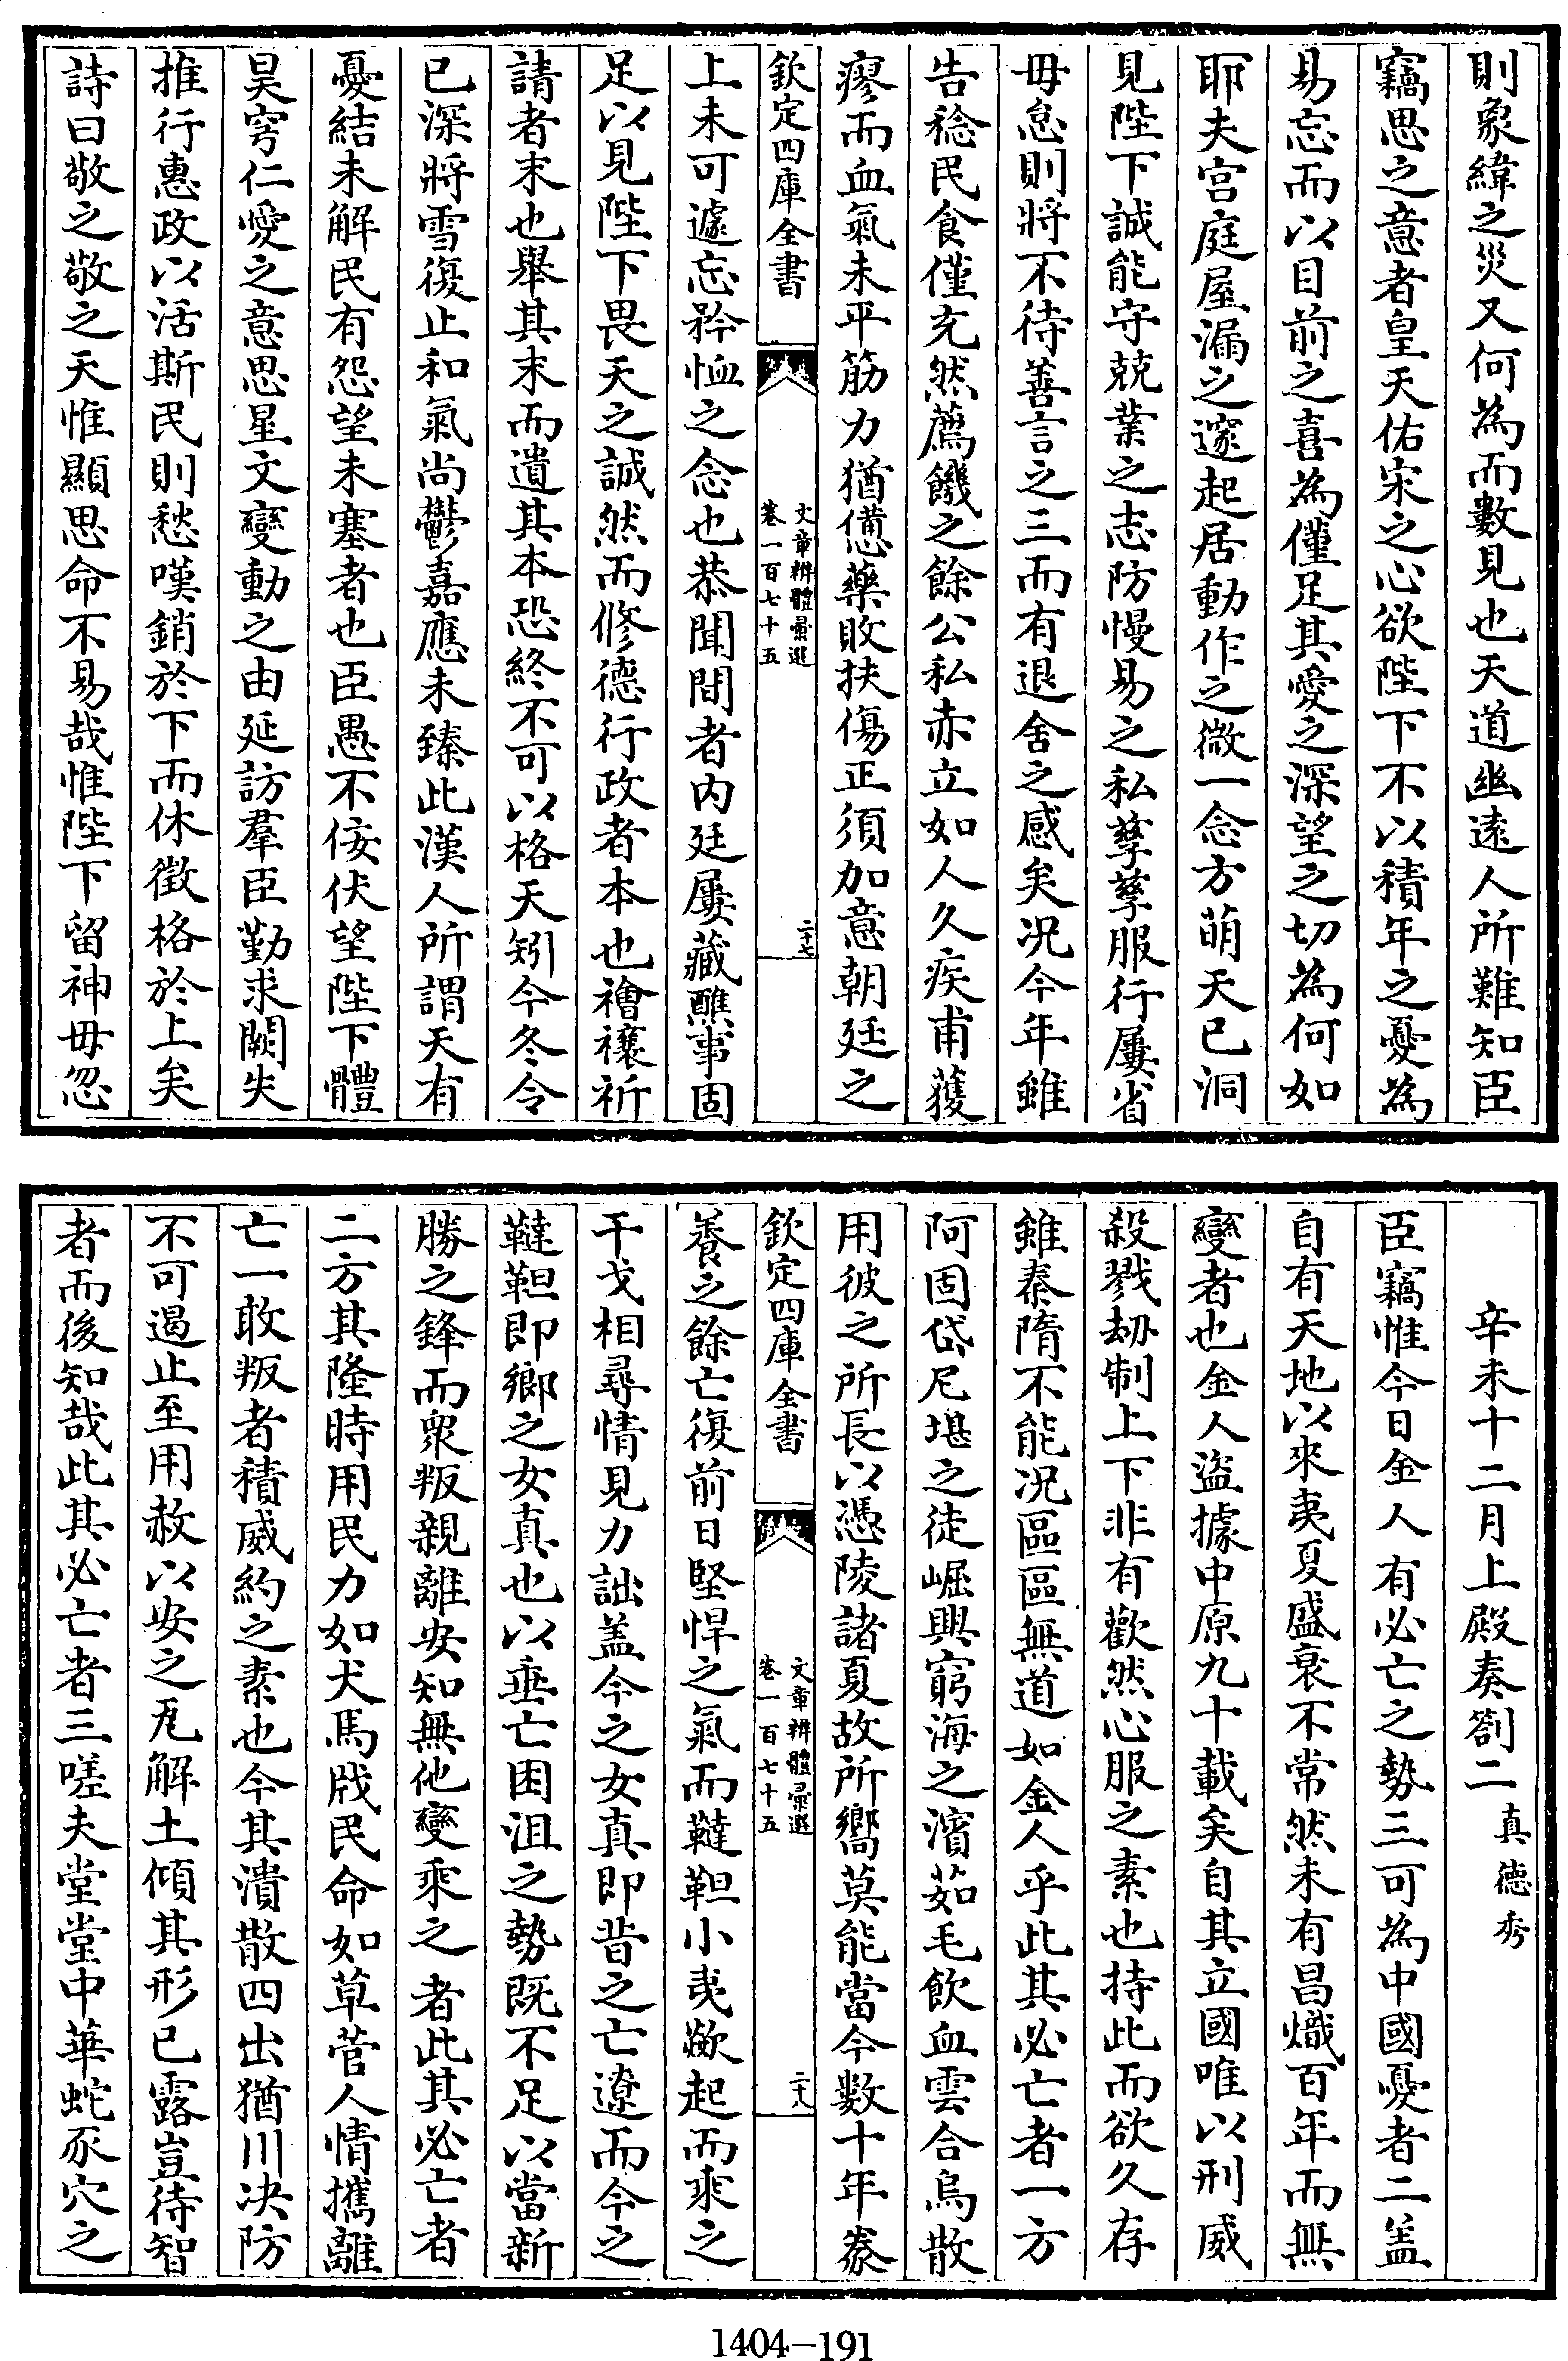 則象緯之災又何為而數見也天道幽逺人所難知臣
竊思之意者皇天佑宋之心欲陛下不以積年之憂為
易忘而以目前之喜為僅足其愛之深望之切為何如
耶夫宫庭屋漏之邃起居動作之微一念方萌天已洞
見陛下誠能守兢業之志防慢易之私孳孳服行屢省
毋怠則將不待善言之三而有退舍之感矣况今年雖
告稔民食僅充然薦饑之餘公私赤立如人久疾甫獲
瘳而血氣未平筋力猶憊藥敗扶傷正須加意朝廷之
欽定四庫全書
文章辨體彙選
卷一百七十五
二十七
上未可遽忘矜恤之念也恭聞間者内廷屢藏醮事固
足以見陛下畏天之誠然而修德行政者本也禬禳祈
請者末也舉其末而遺其本恐終不可以格天矧今冬令
已深將雪復止和氣尚鬱嘉應未臻此漢人所謂天有
憂結未解民有怨望未塞者也臣愚不佞伏望陛下體
昊穹仁愛之意思星文變動之由延訪羣臣勤求闕失
推行惠政以活斯民則愁嘆銷於下而休徵格於上矣
詩曰敬之敬之天惟顯思命不易哉惟陛下留神毋忽
辛未十二月上殿奏劄二 真德秀
臣竊惟今日金人有必亡之勢三可為中國憂者二盖
自有天地以來夷夏盛衰不常然未有昌熾百年而無
變者也金人盜據中原九十載矣自其立國唯以刑威
殺戮刼制上下非有歡然心服之素也持此而欲久存
雖秦隋不能况區區無道如金人乎此其必亡者一方
阿固岱尼堪之徒崛興窮海之濱茹毛飲血雲合烏散
用彼之所長以憑陵諸夏故所嚮莫能當今數十年豢
欽定四庫全書
文章辨體彙選
卷一百七十五
二十八
養之餘亡復前日堅悍之氣而韃靼小夷歘起而乘之
干戈相尋情見力詘盖今之女真即昔之亡遼而今之
韃靼即鄉之女真也以垂亡困沮之勢既不足以當新
勝之鋒而衆叛親離安知無他變乘之者此其必亡者
二方其隆時用民力如犬馬戕民命如草菅人情攜離
亡一敢叛者積威約之素也今其潰散四出猶川决防
不可遏止至用赦以安之瓦解土傾其形已露豈待智
者而後知哉此其必亡者三嗟夫堂堂中華蛇豕穴之
1404-191